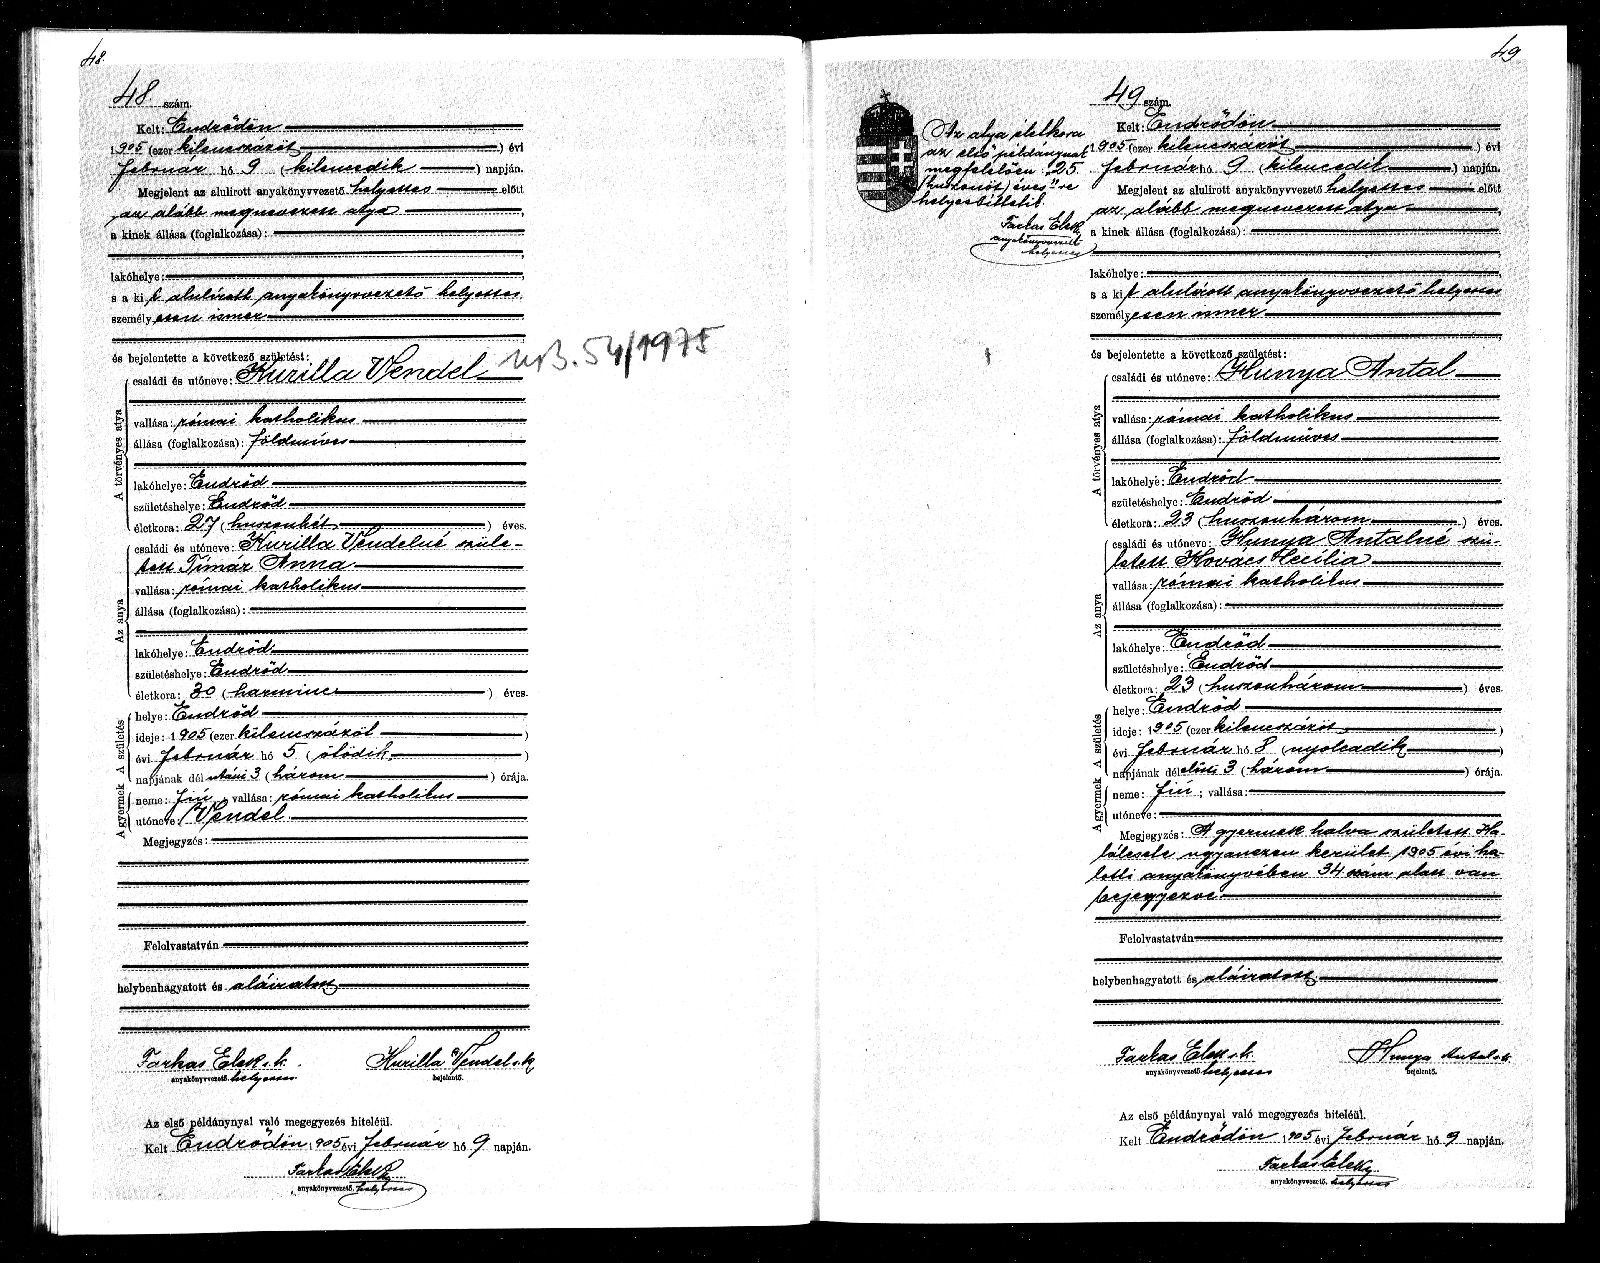 48
48 szám.
Kelt: Endrődön
1905 (ezer kilenczszázöt) évi
február hó 9 (kilenczedik) napján.
Megjelent az alulirott anyakönyvvezető helyettes előtt
az alább megnevezett atya,
a kinek állása (foglalkozása):
lakóhelye:
s a kit alulírott anyakönyvvezető helyettes
személyesen ismer
és bejelentette a következő születést:
A törvényes atya
családi és utóneve: Kurilla Vendel
54/1975
vallása: római katholikus
állása (foglalkozása): földmíves
lakóhelye: Endrőd
születéshelye: Endrőd
életkora: 27 (huszonhét) éves.
Az anya
családi és utóneve: Kurilla Vendelné szüle-
tett Tímár Anna
vallása: római katholikus
állása (foglalkozása):
lakóhelye: Endrőd
születéshelye: Endrőd
életkora: 30 (harmincz) éves.
A születés
helye: Endrőd
ideje: 1905 (ezer kilenczszázöt)
évi február hó 5 (ötödik)
napjának délutáni 3 (három) órája.
A gyermek
neme: fiú; vallása: római katholikus
utóneve: Vendel
Megjegyzés:
Felolvastatván
helybenhagyatott és aláiratott
Farkas Elek s.k. Kurilla Vendel s.k.
anyakönyvvezető. helyettes bejelentő.
Az első példánynyal való megegyezés hiteléül.
Kelt Endrődön 1905 évi február hó 9 napján.
Farkas Elek
anyakönyvvezető. helyettes
49
49 szám.
Az atya életkora
az első példánynak
megfelelően "25
(huszonöt) éves"re
helyesbíttetik.
Farkas Elek
anyakönyvvezető
helyettes
Kelt: Endrődön
1905 (ezer kilenczszázöt) évi
február hó 9 (kilenczedik) napján.
Megjelent az alulirott anyakönyvvezető helyettes előtt
az alább megnevezett atya,
a kinek állása (foglalkozása):
lakóhelye:
s a kit alulírott anyakönyvvezető helyettes
személyesen ismer
és bejelentette a következő születést:
A törvényes atya
családi és utóneve: Hunya Antal
vallása: római katholikus
állása (foglalkozása): földmíves
lakóhelye: Endrőd
születéshelye: Endrőd
életkora: 23 (huszonhárom) éves.
Az anya
családi és utóneve: Hunya Antalné szü-
letett Kovács Cecília
vallása: római katholikus
állása (foglalkozása):
lakóhelye: Endrőd
születéshelye: Endrőd
életkora: 23 (huszonhárom) éves.
A születés
helye: Endrőd
ideje: 1905 (ezer kilenczszázöt)
évi február hó 8 (nyolczadik)
napjának délelőtti 3 (három) órája.
A gyermek
neme: fiú; vallása:
utóneve:
Megjegyzés: A gyermek halva született. Ha-
lálesete ugyanezen kerület 1905 évi ha-
lotti anyakönyvében 34 szám alatt van
bejegyezve
Felolvastatván
helybenhagyatott és aláiratott
Farkas Elek s.k. Hunya Antal s.k.
anyakönyvvezető. helyettes bejelentő.
Az első példánynyal való megegyezés hiteléül.
Kelt Endrődön 1905 évi február hó 9 napján.
Farkas Elek
anyakönyvvezető. helyettes